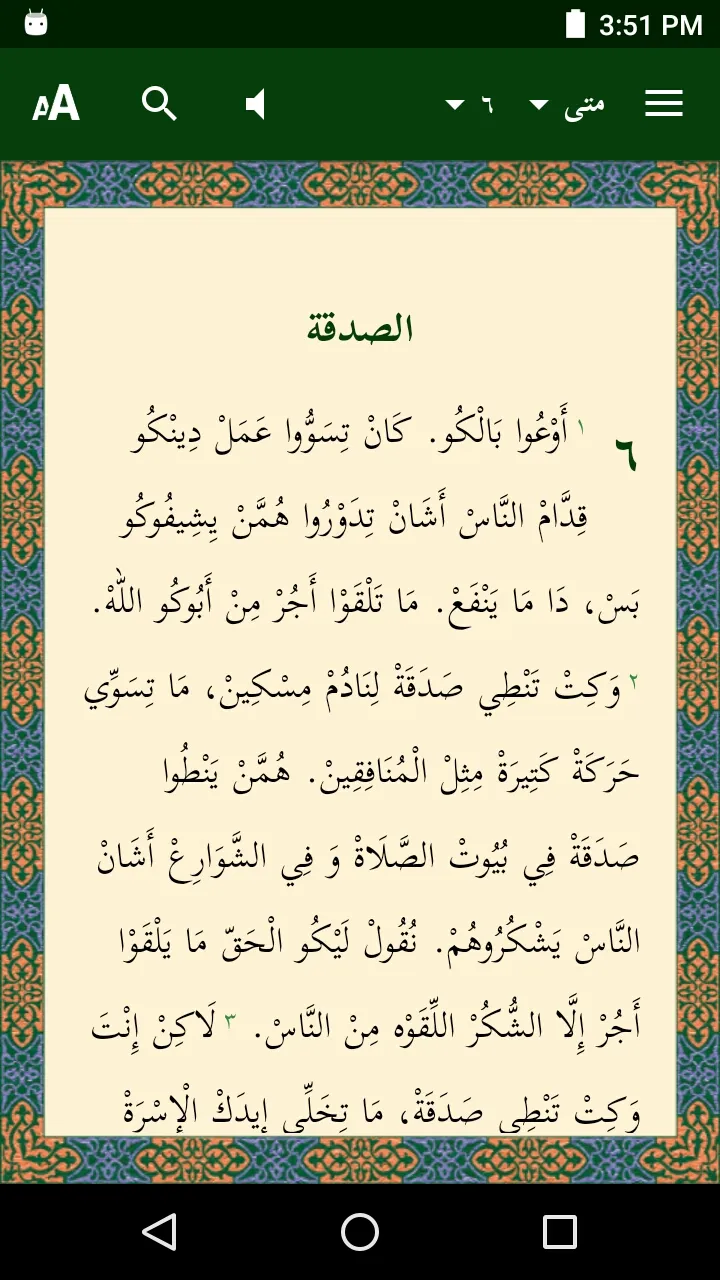 3:51 PM
متى ٦
AA
الصدقة
٦ ١ أَوْعُوا بَالْكُو. كَانْ تِسَوُّوا عَمَلْ دِينْكُو
قِدَّامْ النَّاسْ أَشَانْ تِدَوْرُوا هُمَّنْ يِشِيفُوكُو
بَسْ، دَا مَا يَنْفَعْ. مَا تَلْقَوْا أَجُرْ مِنْ أَبُوكُو اللّٰهْ.
٢ وَكِتْ تَنْطِي صَدَقَةْ لِنَادُمْ مِسْكِينْ، مَا تِسَوِّي
حَرَكَةْ كَتِيرَةْ مِثِلْ الْمُنَافِقِينْ. هُمَّنْ يَنْطُوا
صَدَقَةْ فِي بُيُوتْ الصَّلَاةْ وَ فِي الشَّوَارِعْ أَشَانْ
النَّاسْ يَشْكُرُوهُمْ. نُقُولْ لَيْكُو الْحَقّ مَا يَلْقَوْا
أَجُرْ إِلَّا الشُّكُرْ اللِّقَوْه مِنْ النَّاسْ. ٣ لَاكِنْ إِنْتَ
وَكِتْ تَنْطِي صَدَقَةْ، مَا تِخَلِّي إِيدَكْ الْإِسْرَةْ